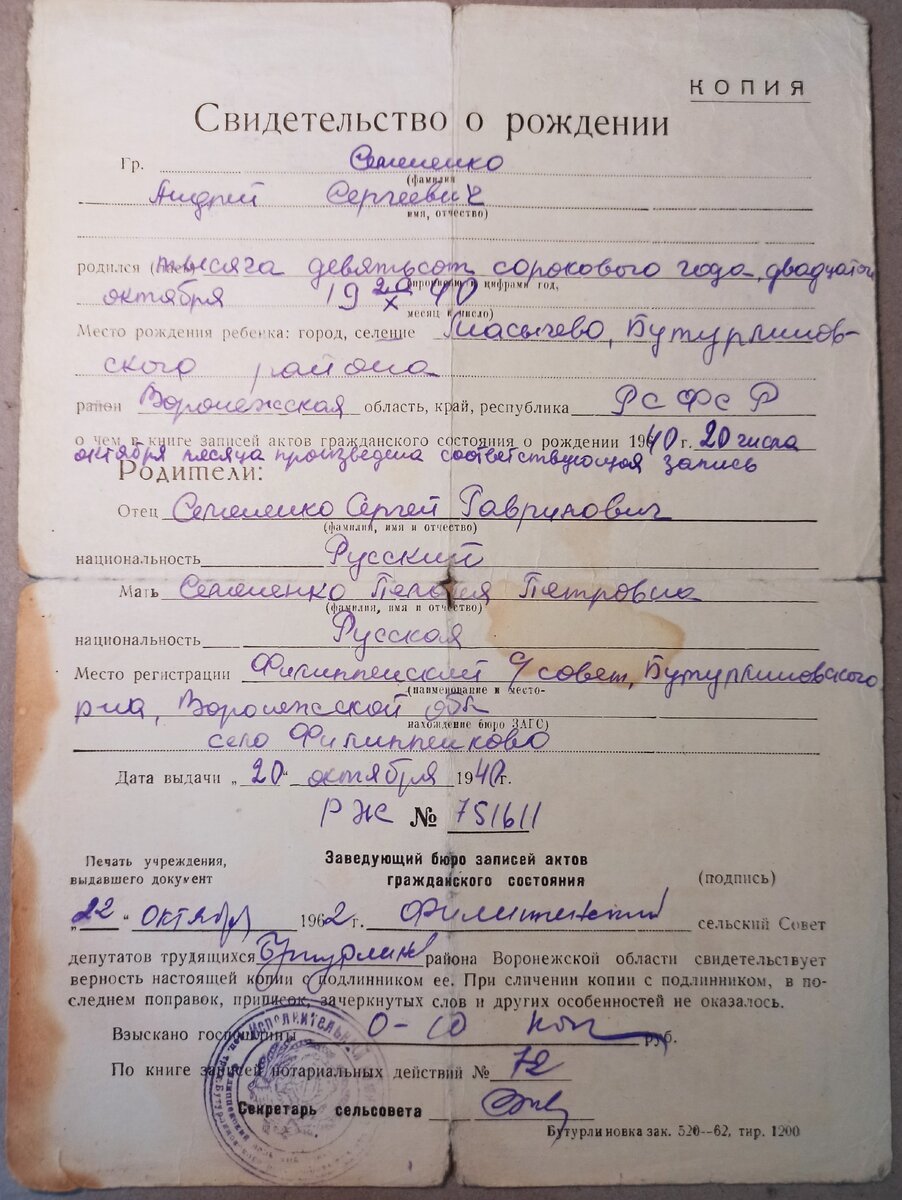 КОПИЯ
Свидетельство о рождении
Гр. Семененко
(фамилия
Андрей Сергеевич
имя, отчество)
родился тысяча девятьсот сорокового года, двадцатого
прописью и цифрами год,
октября 19 20/X 40
месяц и число)
Место рождения ребенка: город, селение Масычево, Бутурлинов-
ского района
район Воронежская область, край, республика РСФСР
о чем в книге записей актов гражданского состояния о рождении 1940 г. 20 числа
октября месяца произведена соответствующая запись
Родители:
Отец Семененко Сергей Гаврилович
(фамилия, имя и отчество)
национальность Русский
Мать Семененко Пелагея Петровна
(фамилия, имя и отчество)
национальность Русская
Место регистрации Филиппенский с/совет, Бутурлиновского
(наименование и место-
р-на, Воронежской обл
нахождение бюро ЗАГС)
село Филиппенково
Дата выдачи „20“ октября 1940г.
РЖ № 751611
Печать учреждения,
выдавшего документ
Заведующий бюро записей актов
гражданского состояния
(подпись)
„22“ октября 1962г. Филиппенский сельский Совет
депутатов трудящихся Бутурлин района Воронежской области свидетельствует
верность настоящей копии с подлинником ее. При сличении копии с подлинником, в по-
следнем поправок, приписок, зачеркнутых слов и других особенностей не оказалось.
Взыскано госпошлины 0-10 коп руб.
По книге записей нотариальных действий № 72
Секретарь сельсовета
Бутурлиновка зак. 520--62, тир. 1200